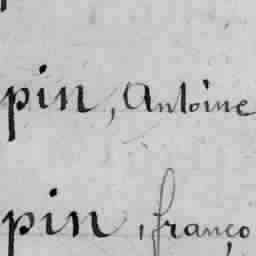 pin, Antoine
pin, franço